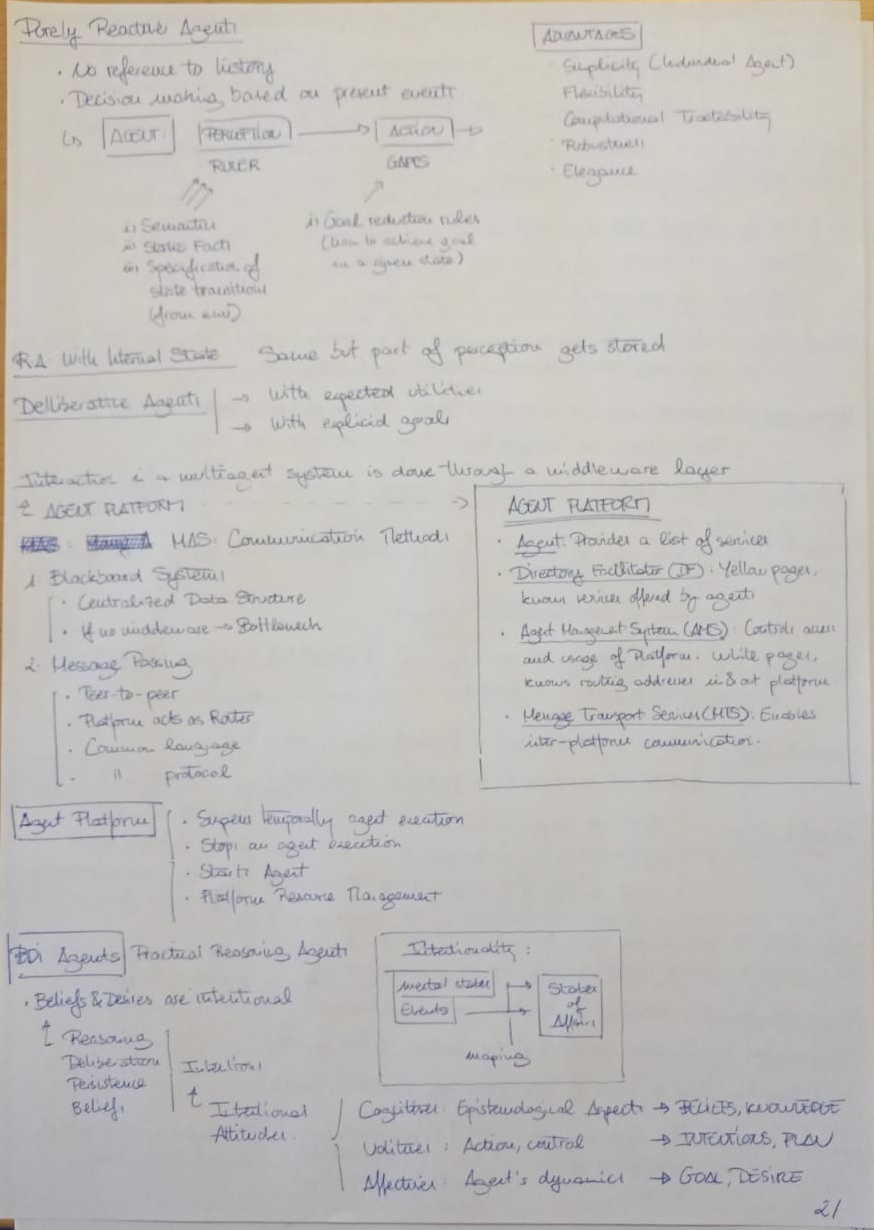 Purely Reactive Agents
· No reference to history
· Decision making based on present events
↳ AGENT: PERCEPTION → ACTION →
RULER GAPPS
i) Semantics
ii) State Facts
iii) Specification of
state transitions
(from env)
i) Goal reduction rules
(how to achieve goal
in a given state)
ADVANTAGES
· Simplicity (Individual Agent)
Flexibility
· Computational Tractability
· Robustness
· Elegance
R.A. With Internal State Same but part of perception gets stored
Delliberative Agents → With expected utilities
→ With explicid goals
Interaction in a multiagent system is done through a middleware layer
AGENT PLATFORM →
MAS: Communication Methods
1. Blackboard Systems
· Centralized Data Structure
· If no middleware → Bottleneck
2. Message Passing
· Peer-to-peer
· Platform acts as Router
· Common language
· " protocol
AGENT PLATFORM
· Agent: Provides a list of services
· Directory Facilitator (DF): Yellow pages,
knows services offered by agents
· Agent Management System (AMS): Controls access
and usage of Platform. White pages,
knows routing addresses in & out platform
· Message Transport Services (MTS): Enables
inter-platform communication.
Agent Platform
· temporally agent execution
· Stops an agent execution
· Starts Agent
· Platform Resource Management
BDi Agents Practical Reasoning Agents
· Beliefs & Desires are intentional
Reasoning
Deliberation
Persistence
Beliefs
Intentions
Intentional
Attitudes.
Intentionality:
mental states
Events
States
of
Affairs
maping
Cognitives: Epistemological Aspects → BELIEFS, KNOWLEDGE
Volitives: Action, control → INTENTIONS, PLAN
Affectives: Agent's dynamics → GOAL, DESIRE
21